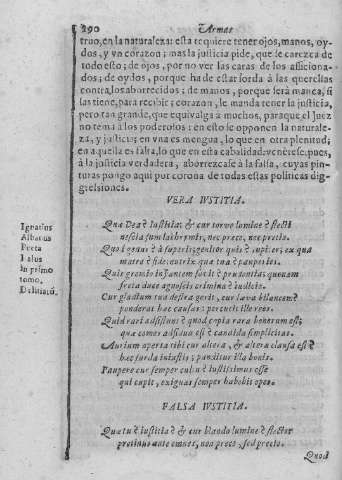 290 Armas
truo, en la naturaleza: esta requiere tener ojos, manos, oy-
dos, y vn corazon; mas la justicia pide, que se carezca de
todo esto; de ojos, por no ver las caras de los afficiona-
dos; de oydos, porque ha de estar sorda à las querellas
contra los aborrecidos; de manos, porque serà manca, si
las tiene, para recibir; corazon, le manda tener la justicia,
pero tan grande, que equivalga a muchos, paraque el Juez
no tema à los poderosos: en esto se opponen la naturale-
za, y justicia; en vna es mengua, lo que en otra plenitud;
en aquella es falta, lo que en esta cabalidad: venerese pues,
à la justicia verdadera, aborrezcase à la falsa, cuyas pin-
turas pongo aqui por corona de todas estas politicas dig-
gressiones.
VERA IVSTITIA.
Ignatius
Albanus
Poeta
in primo
tomo.
Quæ Dea? Iustitia: & cur torvo lumine
nescia sum labi pretio, nec prece, nec pretio.
Quo genus? à superis; genitor quis?
matre? fides: nutrix quæ tua? pauperies.
frete duce agnoscis crimina? iudicio.
Cur gladium tua dextra gerit, cur læva bilancem?
ponderat hæc causas: percutit ille reos.
Quid rari adsistunt? quod copia rara bonorum est;
quæ comes adsidua est? candida simplicitas.
Aurium operta tibi cur altera, & altera clausa est?
hæc surda iniustis; panditur illa bonis.
Paupere cur semper cultu? iustissimus esse
qui cupit, exiguas semper habebit opes.
FALSA IVSTITIA.
Quæ tu? Iustitia? & cur blando lumine
ante omnes, non prece, sed pretio.
Quod